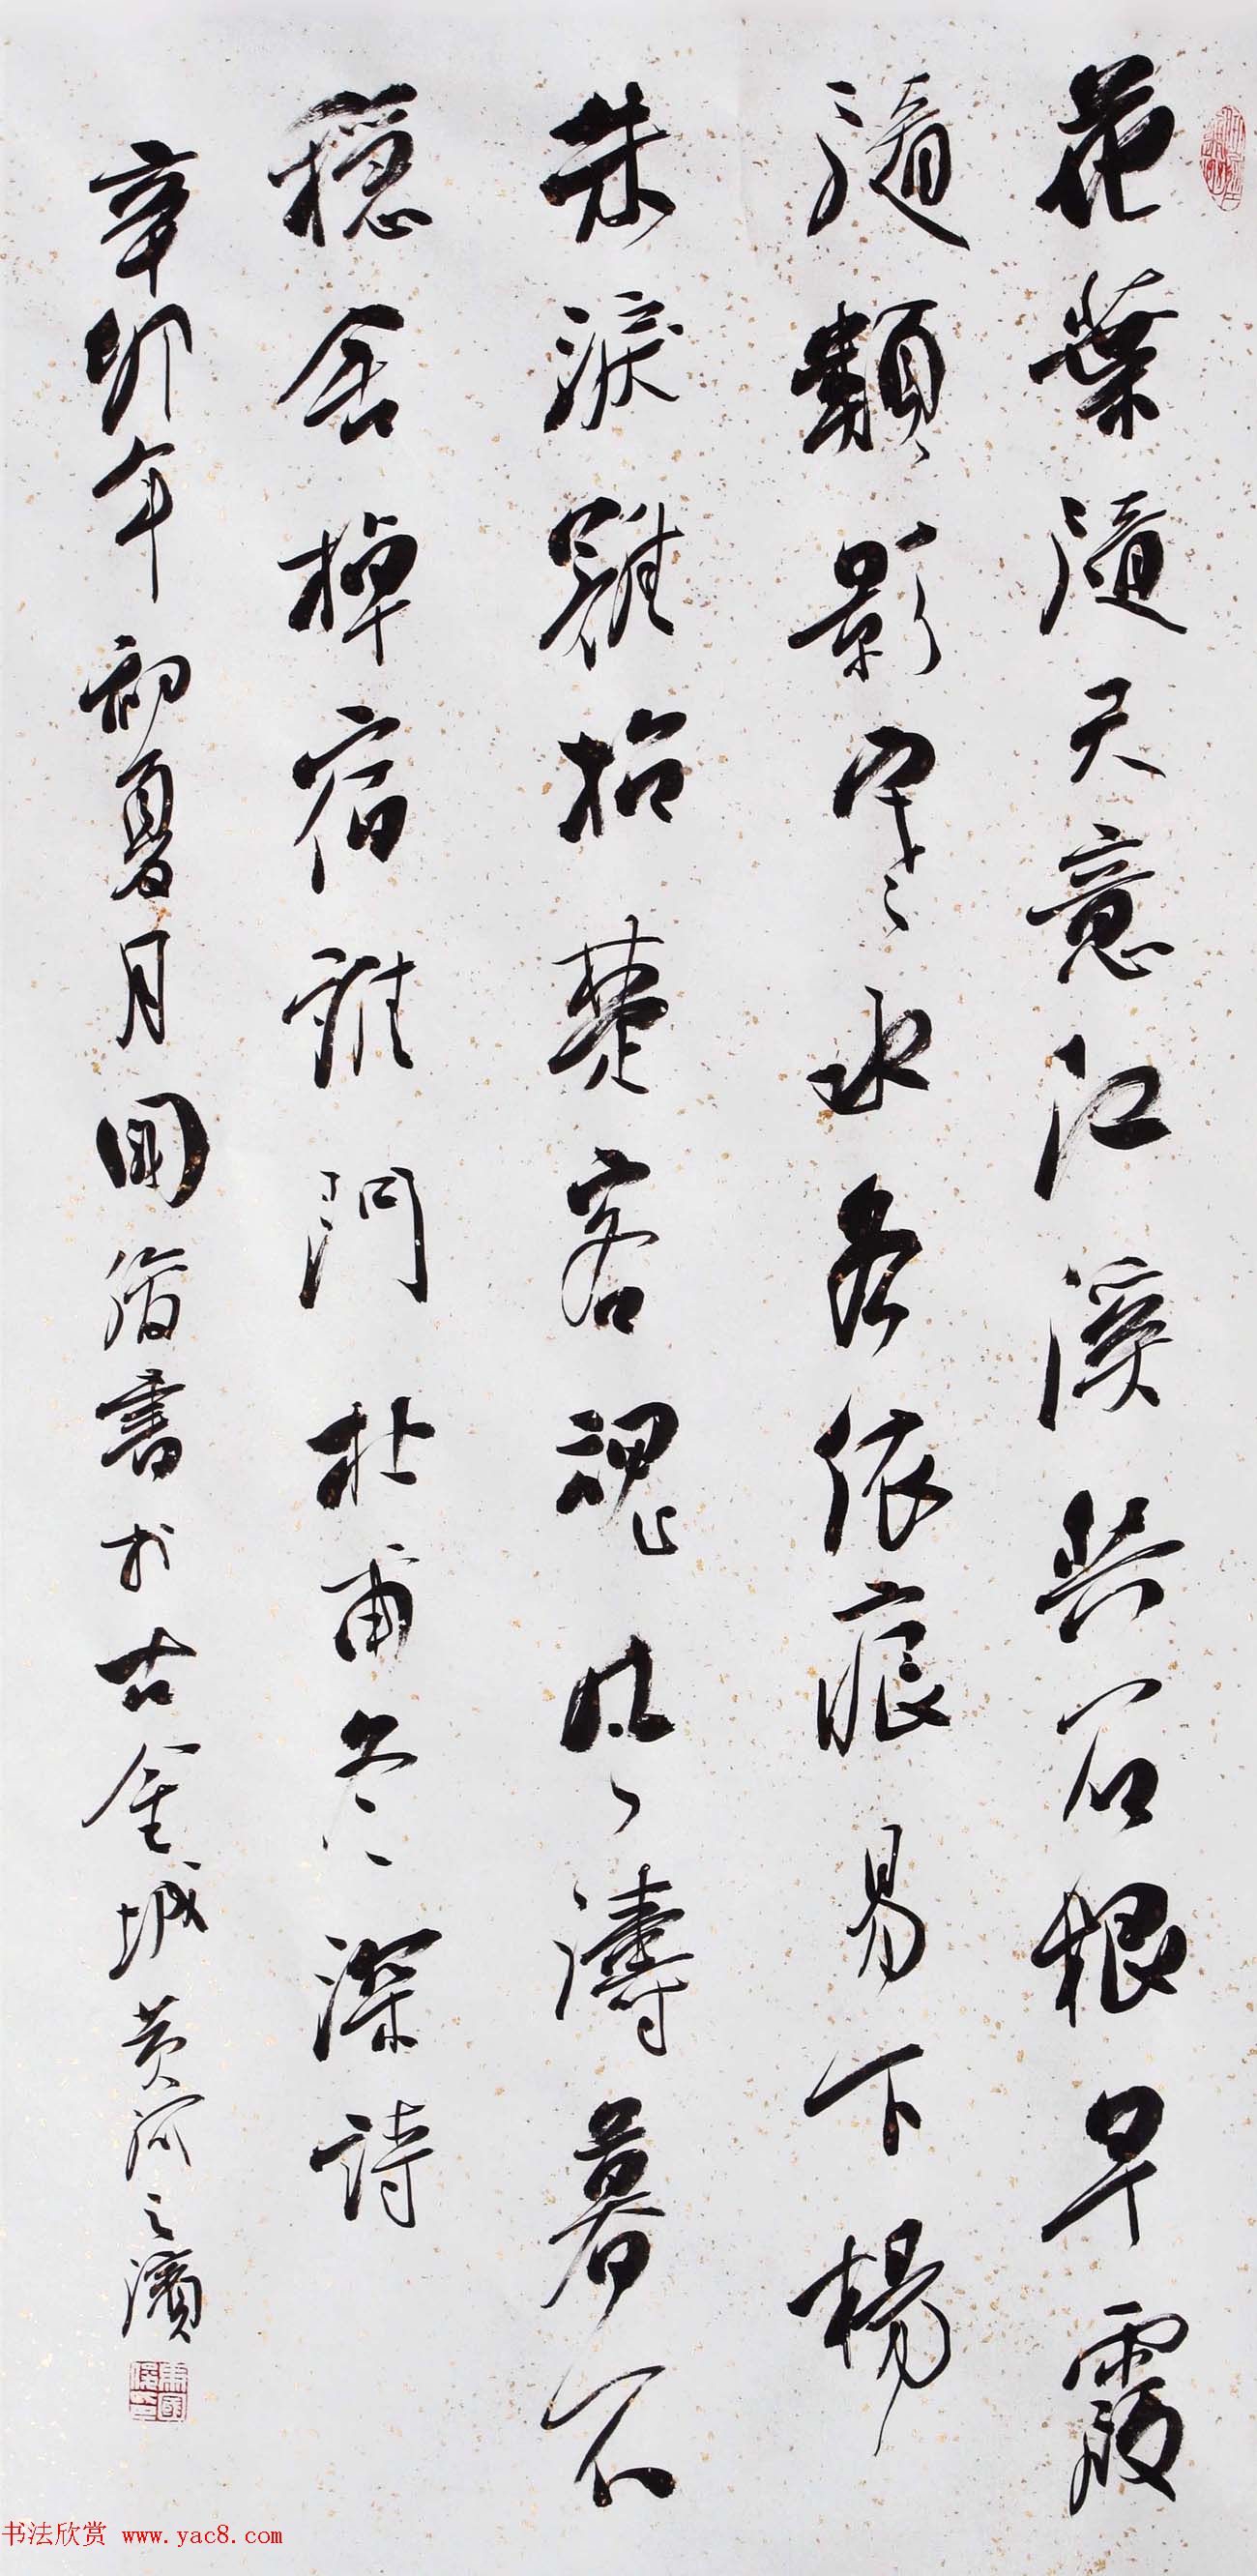 花葉隨天意江溪共石根早霞
隨類影寒水各依痕易下楊
朱淚難招楚客魂風濤暮不
穩舍棹宿誰門杜甫冬深詩
辛卯年初夏月國俊書於古金城黃河之濱
书法欣赏 www.yac8.com